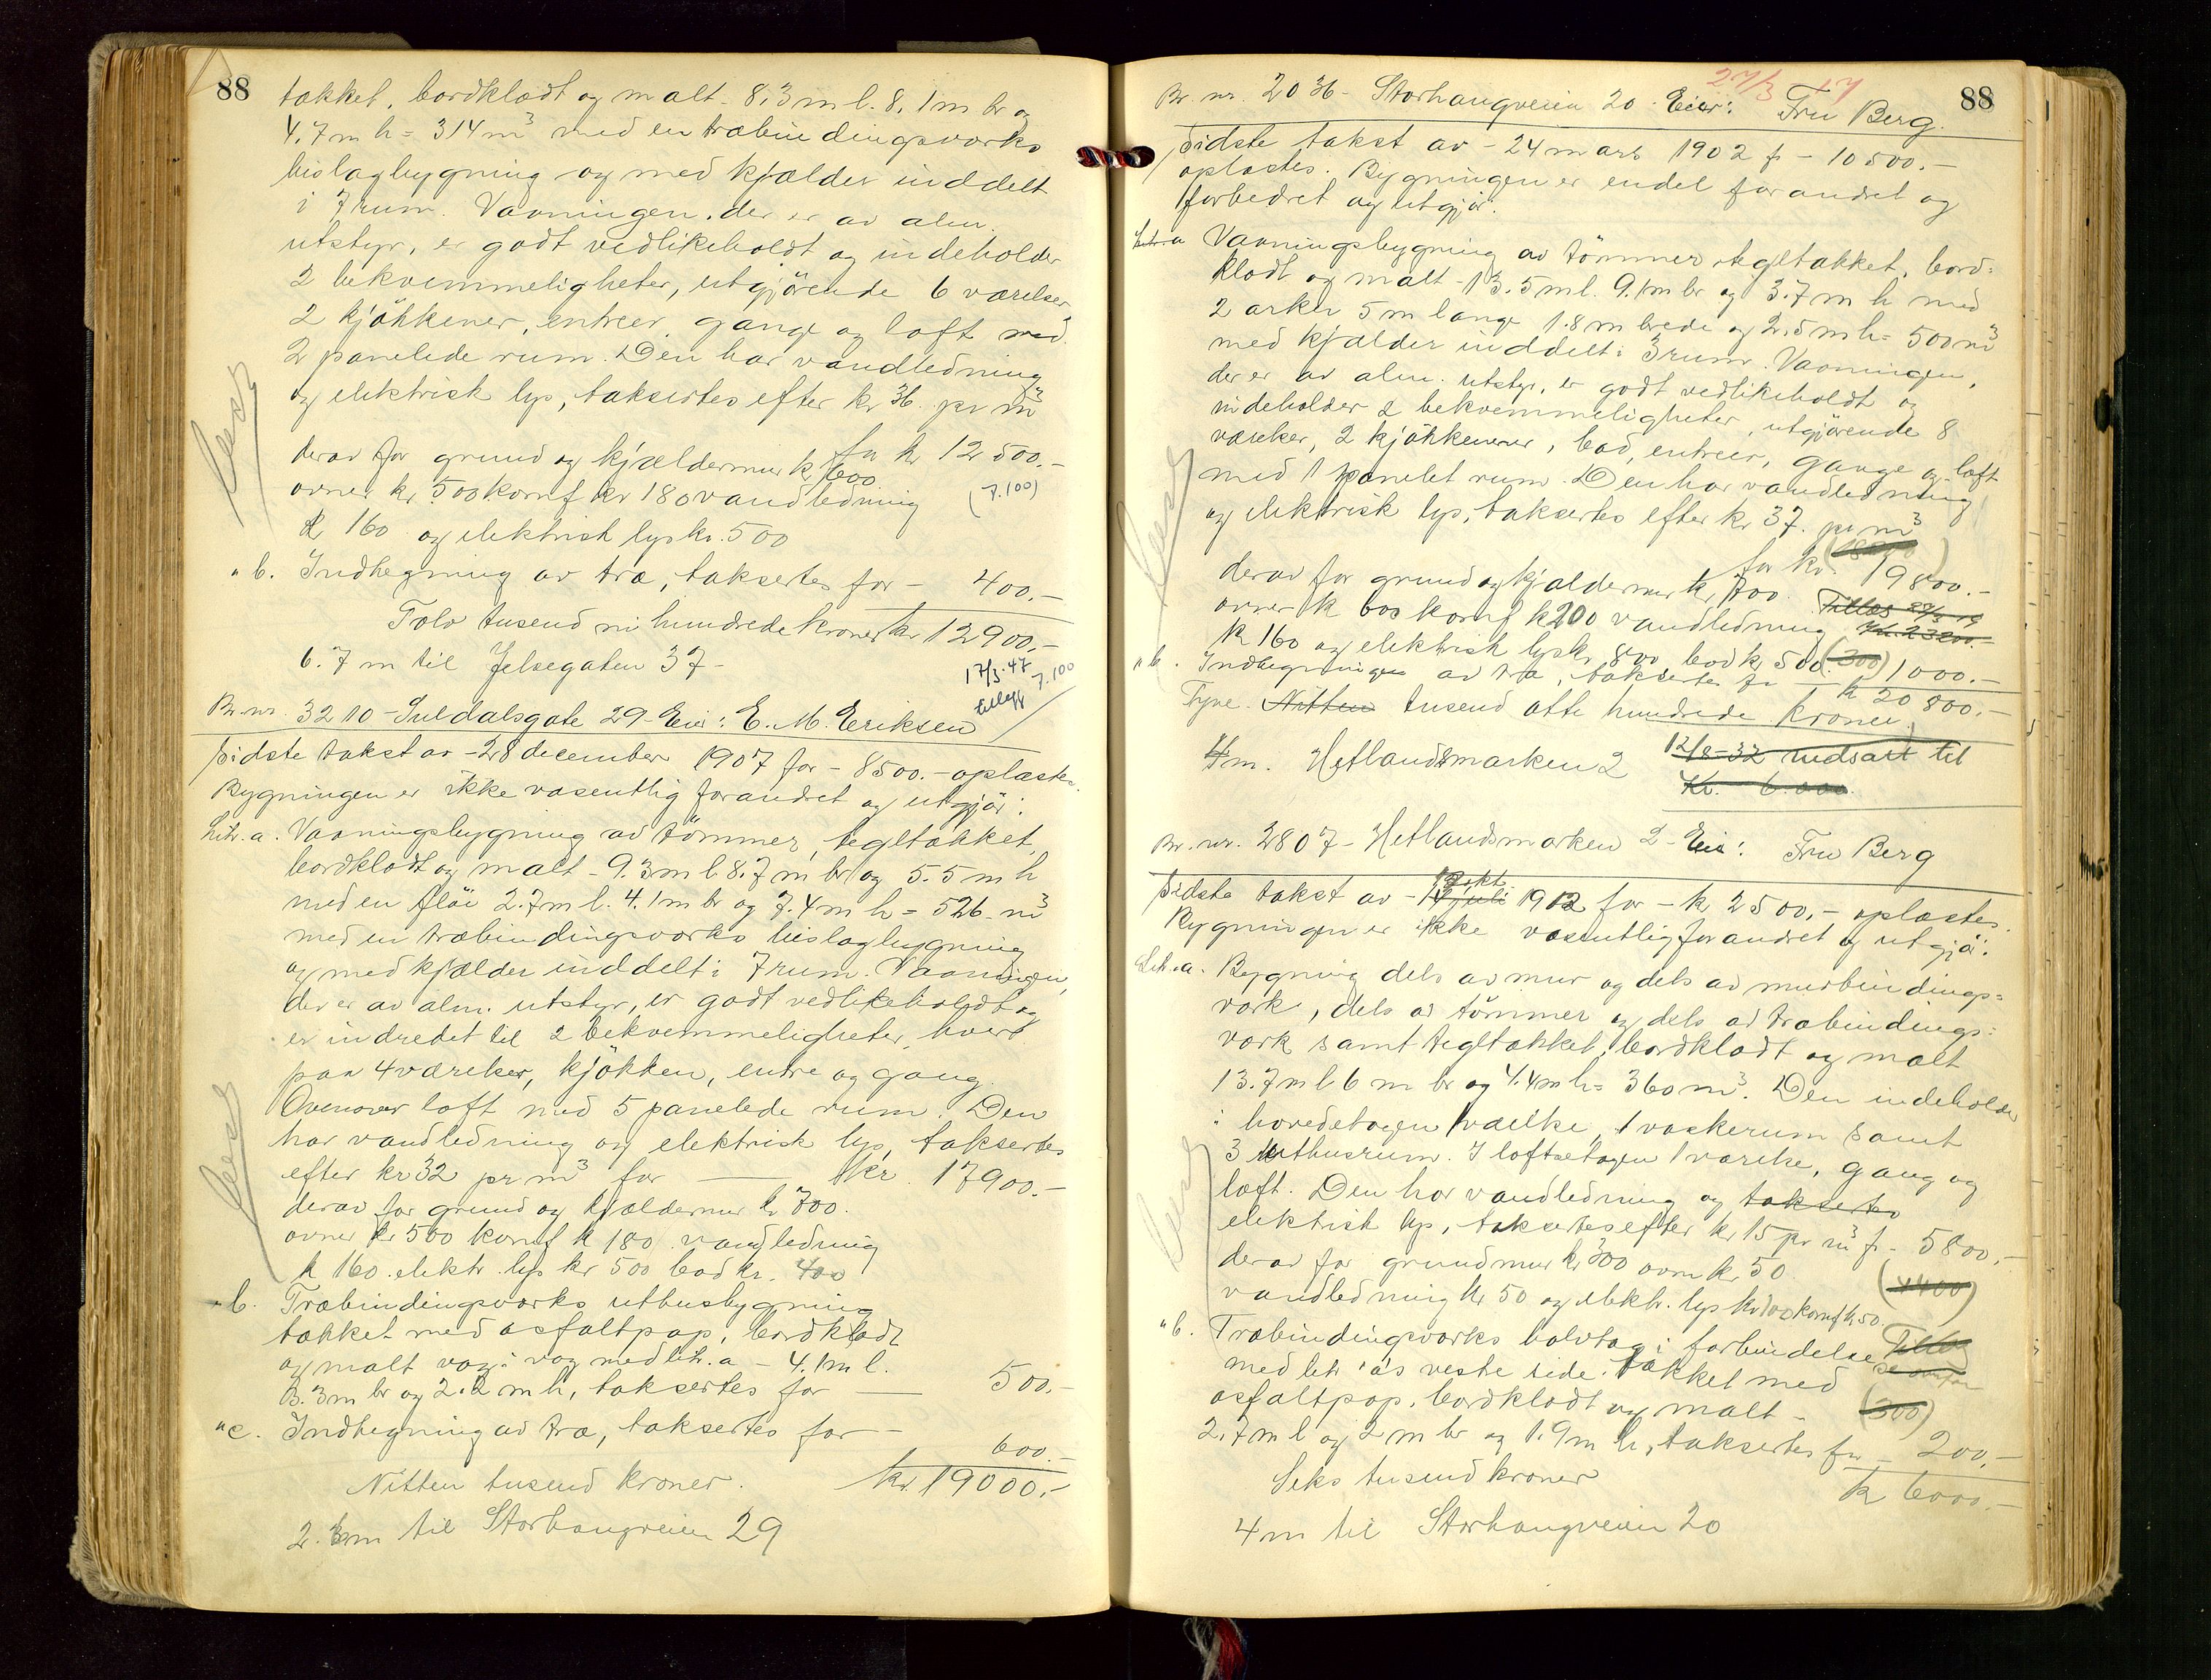 88
takket, bordklædt og malt - 8.3 m l. 8.1 m br og
4.7 m h = 314 m³ med en træbindingsverks
bislagbygning og med kjælder inddelt
i 7 rum. Vaaningen, der er av alm.
utstyr, er godt vedlikeholdt og indeholder
2 bekvemmeligheter, utgjörende 6 værelser
2 kjökkener, entreer, gange og loft med
2 panelede rum. Den har vandledning
og elektrisk lys, taksertes efter kr 36 pr m³
for kr 12 500.-
derav for grund og kjældermur kr 600
ovner kr 500 komf kr 180 vandledning
(7.100)
kr 160 og elektrisk lys kr. 500
" b. Indhegning av træ, taksertes for - 400.-
Tolv tusend ni hundrede kroner kr 12900.-
6.7 m til Jelsegaten 37-
17/3-47
tillegg 7.100
Br. nr. 3210 - Suldalsgate 29 - Eier: E. M. Eriksen
Sidste takst av - 28 december 1907 for - 8500.- oplæstes.
Bygningen er ikke væsentlig forandret og utgjör:
Litr. a. Vaaningsbygning av tömmer, tegltækket,
bordklædt og malt - 9.3 m l 8.7 m br og 5.5 m h
med en flöi 2.7 m l. 4.1 m br og 7.4 m h = 526 m³
med en træbindingsverks bislagbygning
og med kjælder inddelt i 7 rum. Vaaningen,
der er av alm. utstyr, er godt vedlikeholdt og
er indredet til 2 bekvemmeligheter, hver
paa 4 værelser, kjökken, entre og gang.
Ovenover loft med 5 panelede rum. Den
har vandledning og elektrisk lys, taksertes
efter kr 32 pr m³ for — kr 17900.-
derav for grund og kjældermur kr 700.
ovner kr 500 komf kr 180 vandledning
kr 160. elektr. lys kr 500 bad kr. 400
" b. Træbindingsverks uthusbygning
tækket med asfaltpap, bordklædt
og malt væg i væg med litr. a - 4.1 m l.
3.3 m br og 2.2 m h, taksertes for — 500.-
" c. Indhegning av træ, taksertes for - 600.-
Nitten tusend kroner. kr 19000.-
2.3 m til Storhaugveien 29
27/3 17
88
Br. nr. 2036 - Storhaugveien 20. Eier: Fru Berg.
Sidste takst av - 24 mars 1902 fr - 10500.-
oplæstes. Bygningen er endel forandret og
forbedret og utgjör:
Litr a Vaaningsbygning av tömmer, tegltækket, bord=
klædt og malt - 13.5 m l. 9.1 m br og 3.7 m h med
2 arker 5 m lange 1.8 m brede og 2.5 m h = 500 m³
med kjælder inddelt i 3 rum. Vaaningen,
der er av alm. utstyr, er godt vedlikeholdt og
indeholder 2 bekvemmeligheter, utgjörende 8
værelser, 2 kjökkener, bad, entreer, gange og loft
med 1 panelet rum. Den har vandledning
og elektrisk lys, taksertes efter kr 37. pr m³
for kr. 19800.-
derav for grund og kjældermur kr 700.
ovner kr 600 komf kr 200 vandledning
Kr. 23200.-
kr 160 og elektrisk lys kr 800, bad kr 500. (300)
" b. Indhegningen av træ, taksertes for — 1000.-
kr 20 800.-
Tyve Nitten tusend otte hundrede kroner
4 m. Hetlandsmarken 2
12/8-32 nedsatt til
Kr. 6.000
Br. nr. 2807 - Hetlandsmarken 2 - Eier: Fru Berg
12 okt.
Sidste takst av - 14 juli 1912 for - kr 2500.- oplæstes.
Bygningen er ikke væsentlig forandret og utgjör:
Litr. a. Bygning dels av mur og dels av murbindings=
værk, dels av tömmer og dels av træbindings=
værk samt tegltækket, bordklædt og malt
13.7 m l 6 m br og 4.4 m h = 360 m³. Den indeholder
i hovedetagen 1 værelse, 1 vaskerum samt
3 uthusrum. I loftsetagen 1 værelse, gang og
loft. Den har vandledning og taksertes
elektrisk lys, taksertes efter kr 15 pr m³ fr - 5800.-
derav for grundmur kr 300 ovn kr 50
(4400)
vandledning kr 50 og elektr. lys kr 100 komf kr 50.
" b. Træbindingsverks halvtag i forbindelse
med litr. a's vestre side. Tækket med
asfaltpap, bordklædt og malt -
(300)
2.7 m l og 2 m br og 1.9 m h, taksertes for - 200.-
Seks tusend kroner kr 6000.-
4 m til Storhaugveien 20